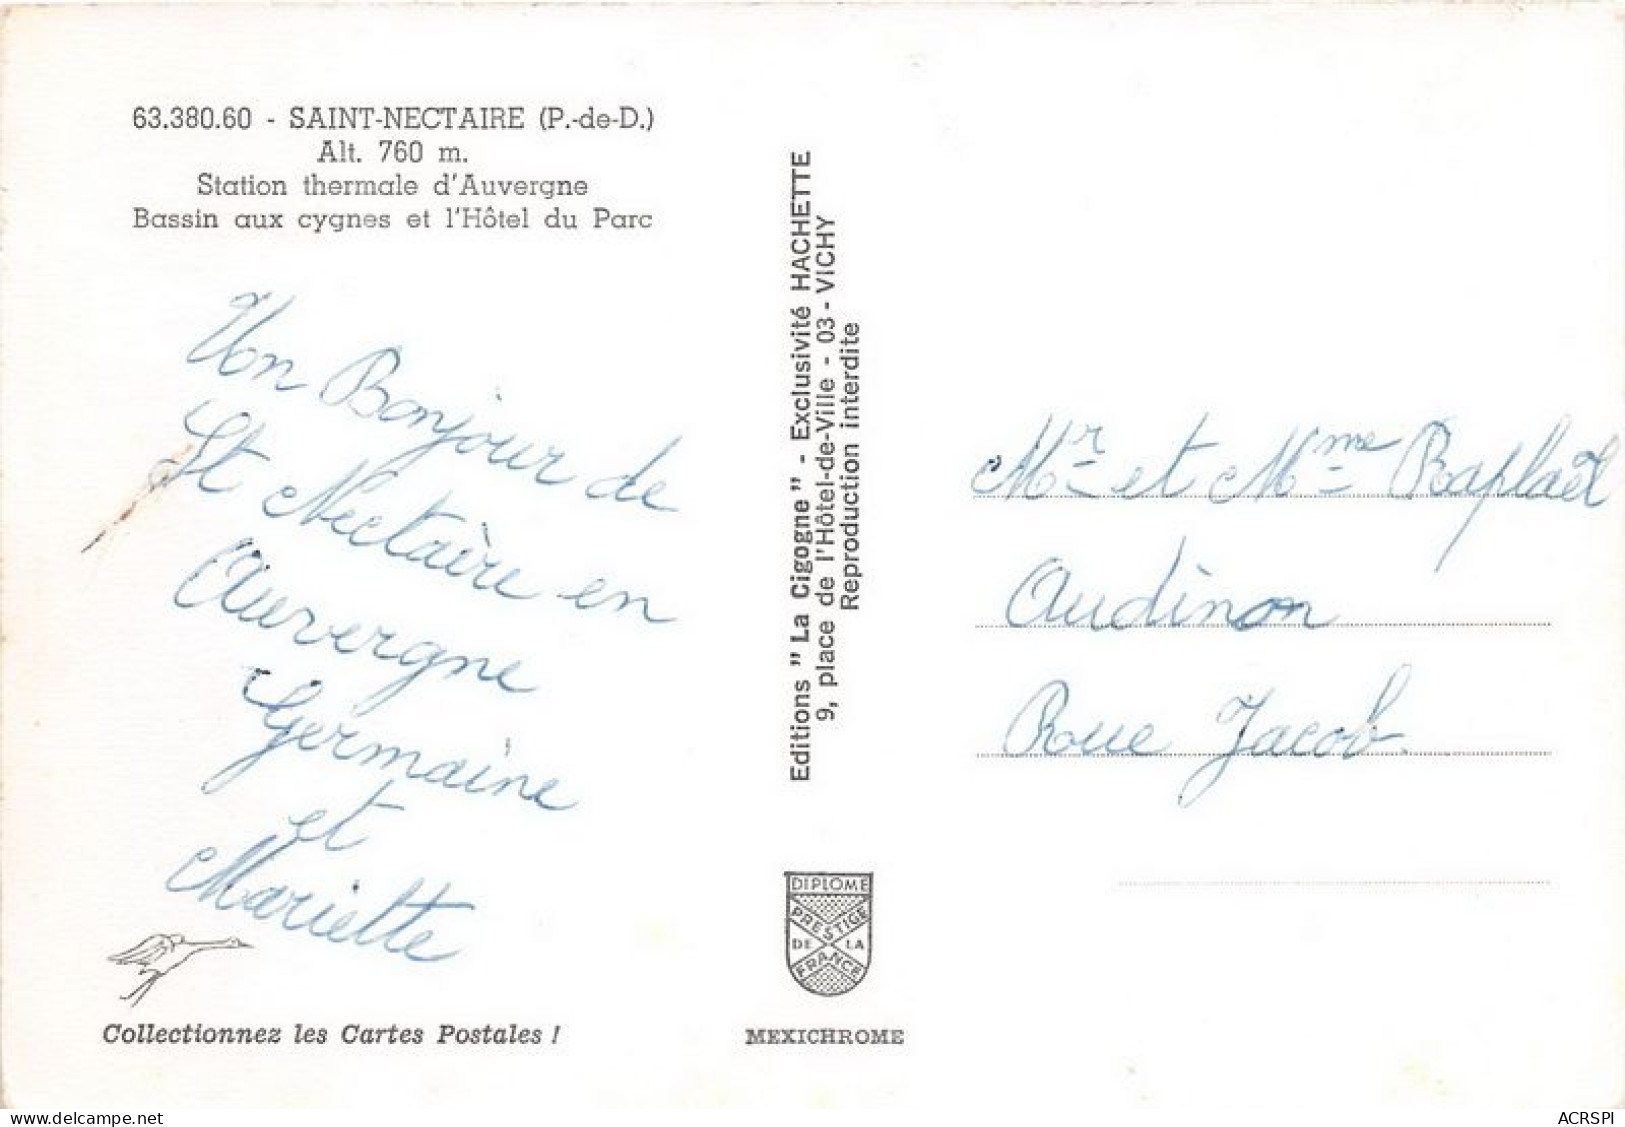 63.380.60 - SAINT-NECTAIRE (P.-de-D.)
Alt. 760 m.
Station thermale d'Auvergne
Bassin aux cygnes et l'Hôtel du Parc
Un Bonjour de
St Nectaire en
Auvergne
Germaine
et
Mariette
Collectionnez les Cartes Postales !
Editions "La Cigogne" - Exclusivité HACHETTE
9, place de l'Hôtel-de-Ville - 03 - VICHY
Reproduction interdite
DIPLOME
PRESTIGE
DE LA
FRANCE
MEXICHROME
Mr et Mme Raphaël
Audinon
Roue Jacob
Delcampe.net
ACRSPI